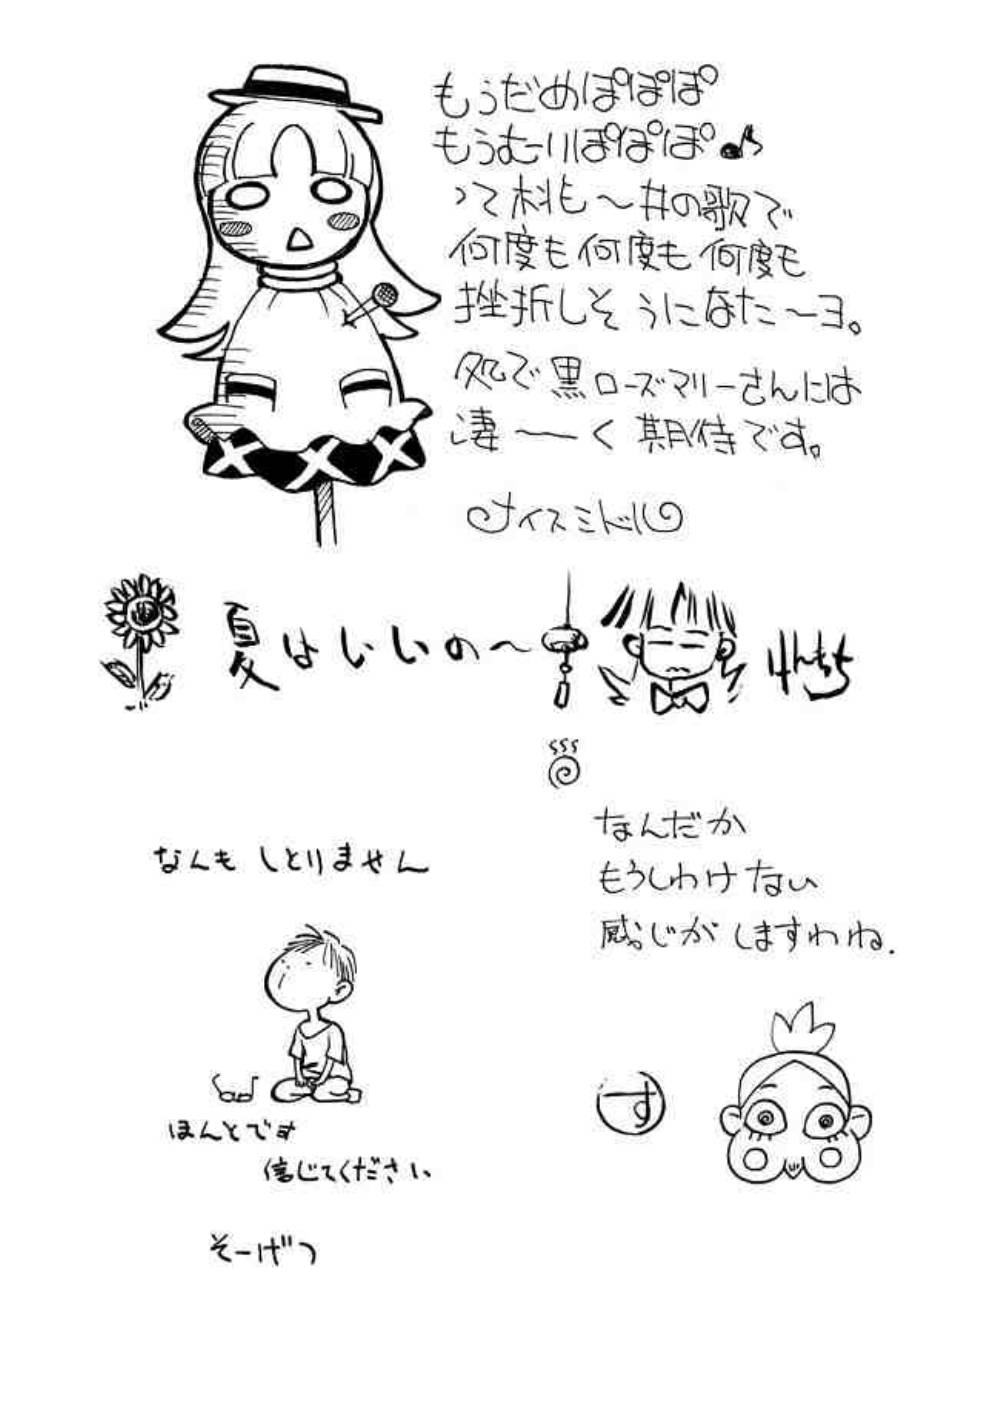 もうだめぽぽぽ
もうむりぽぽぽ♪
って 〜井の歌で
何度も何度も何度も
挫折しそうになた〜ヨ。
処で黒ローズマリーさんには
凄〜〜く期待です。
ナイスミドル
夏はいいの〜
けんもち
なんも しとりません
なんだか
もうしわけない
感じがしますわね.
ほんとです
信じてください
す
そーげつ